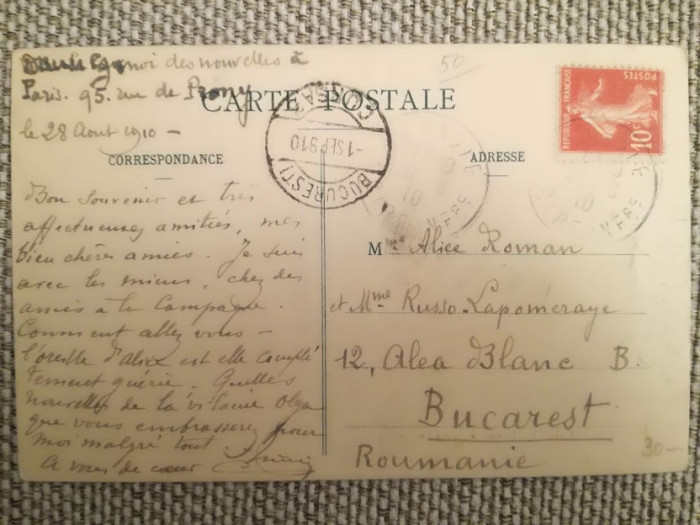 moi des nouvelles à
Paris. 95. rue de Prony
le 28 Août 1910 -
50
CARTE POSTALE
CORRESPONDANCE
ADRESSE
REPUBLIQUE FRANÇAISE
POSTES
10c
BUCURESTI
-1SEP910
Bon souvenir et très
affectueuses amitiés, mes
bien chères amies. Je suis
avec les miens, chez des
amis à la Campagne.
Comment allez vous -
l'oreille d'Alice est elle complè
tement guérie. Quelles
nouvelles de la vilaine Olga
que vous embrasserez pour
moi malgré tout.
A vous de coeur
Mme Alice Roman
et Mme Russo-Lapomeraye
12, Alea Blanc B.
Bucarest
Roumanie
30-